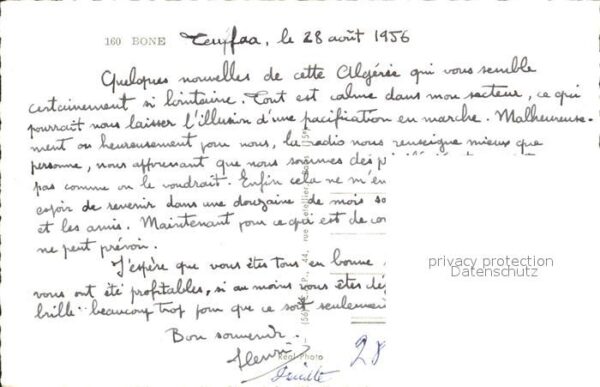 160 BONE
Teuffaa, le 28 août 1956
Quelques nouvelles de cette Algérie qui vous semble
certainement si lointaine. Tout est calme dans mon secteur, ce qui
pourrait nous laisser l'illusion d'une pacification en marche. Malheureuse-
ment ou heureusement pour nous, la radio nous renseigne mieux que
personne, nous apprenant que nous sommes des
pas comme on le voudrait. Enfin cela ne m'en
espoir de revenir dans une douzaine de mois
et les amis. Maintenant pour ce qui est de
ne peut prévoir.
J'espère que vous êtes tous en bonne
vous ont été profitables, si au moins vous êtes
brille beaucoup trop pour que ce soit seulement
Bon souvenir.
Henri
28
44, rue Letellier
Real Photo
privacy protection
Datenschutz